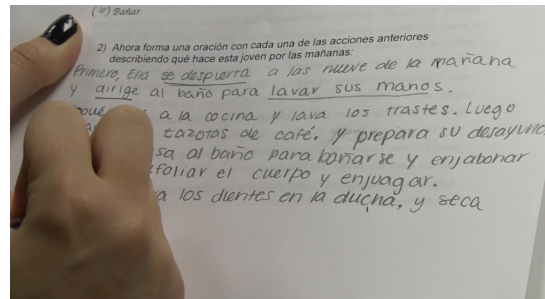 (φ) Bañar
2) Ahora forma una oración con cada una de las acciones anteriores
describiendo qué hace esta joven por las mañanas:
Primero, Ella se despierta a las nueve de la mañana
y dirige al baño para lavar sus manos.
a la cocina y lava los trastes. Luego
tazotas de café, y prepara su desayuno
al baño para bañarse y enjabonar
el cuerpo y enjuagar.
los dientes en la ducha, y seca